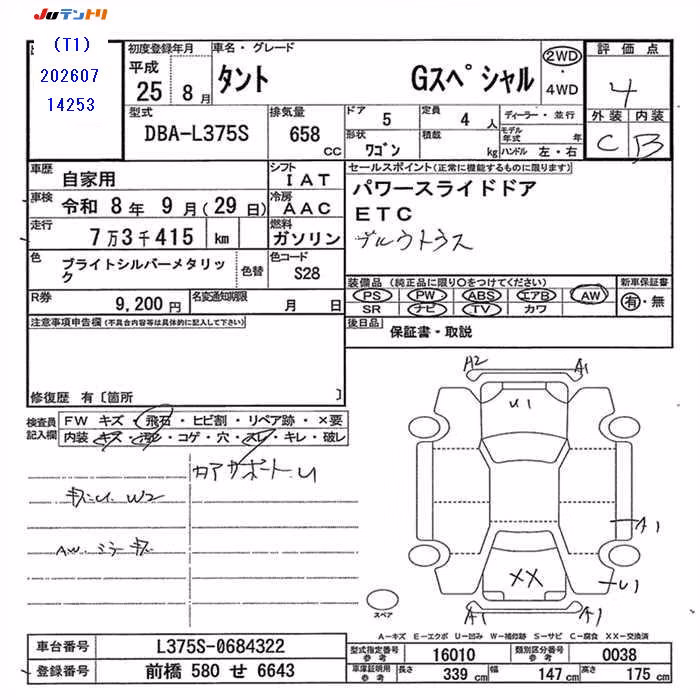 Juテントリ
(T1)
202607
14253
初度登録年月
平成
25 8月
車名・グレード
タント Gスペシャル
2WD
・
4WD
評価点
4
外装 内装
C B
型式
DBA-L375S
排気量
658 CC
ドア 5
定員 4 人
形状 ワゴン
積載 kg
ディーラー・並行
モデル年式 年
ハンドル 左・右
車歴 自家用
シフト IAT
車検 令和 8年 9月(29日)
冷房 AAC
走行 7万3千415 km
燃料 ガソリン
色 ブライトシルバーメタリック
色替
色コード S28
R券 9,200円
名変通知期限 月 日
セールスポイント(正常に機能するものに限ります)
パワースライドドア
ETC
装備品(純正品に限り〇をつけてください)
PS PW ABS エアB AW
SR ナビ TV カワ
新車保証書
有・無
後日品 保証書・取説
注意事項申告欄(不具合内容等は具体的に記入して下さい)
修復歴 有〔箇所 〕
検査員記入欄
FW キズ・飛石・ヒビ割・リペア跡・×要
内装・キズ・汚れ・コゲ・穴・スレ・キレ・破レ
W2
AW
A2 A1
U1
A1
XX
U1
A1 A1
スペア
A-キズ E-エクボ U-凹み W-補修跡 S-サビ C-腐食 XX-交換済
車台番号 L375S-0684322
登録番号 前橋 580 せ 6643
型式指定番号 参考 16010
類別区分番号 参考 0038
車庫証明用 参考 長さ 339 cm 幅 147 cm 高さ 175 cm